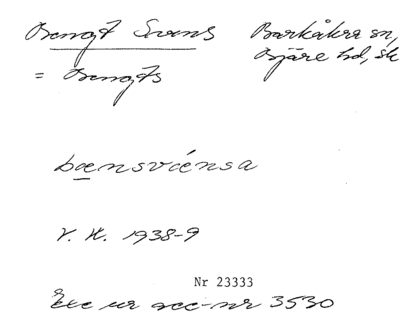 Bengt Svens Barkåkra sn,
= Bengts Bjäre hd, sk
bænsvænsa
V. K. 1938-9
Nr 23333
Exc ur acc-nr 3530